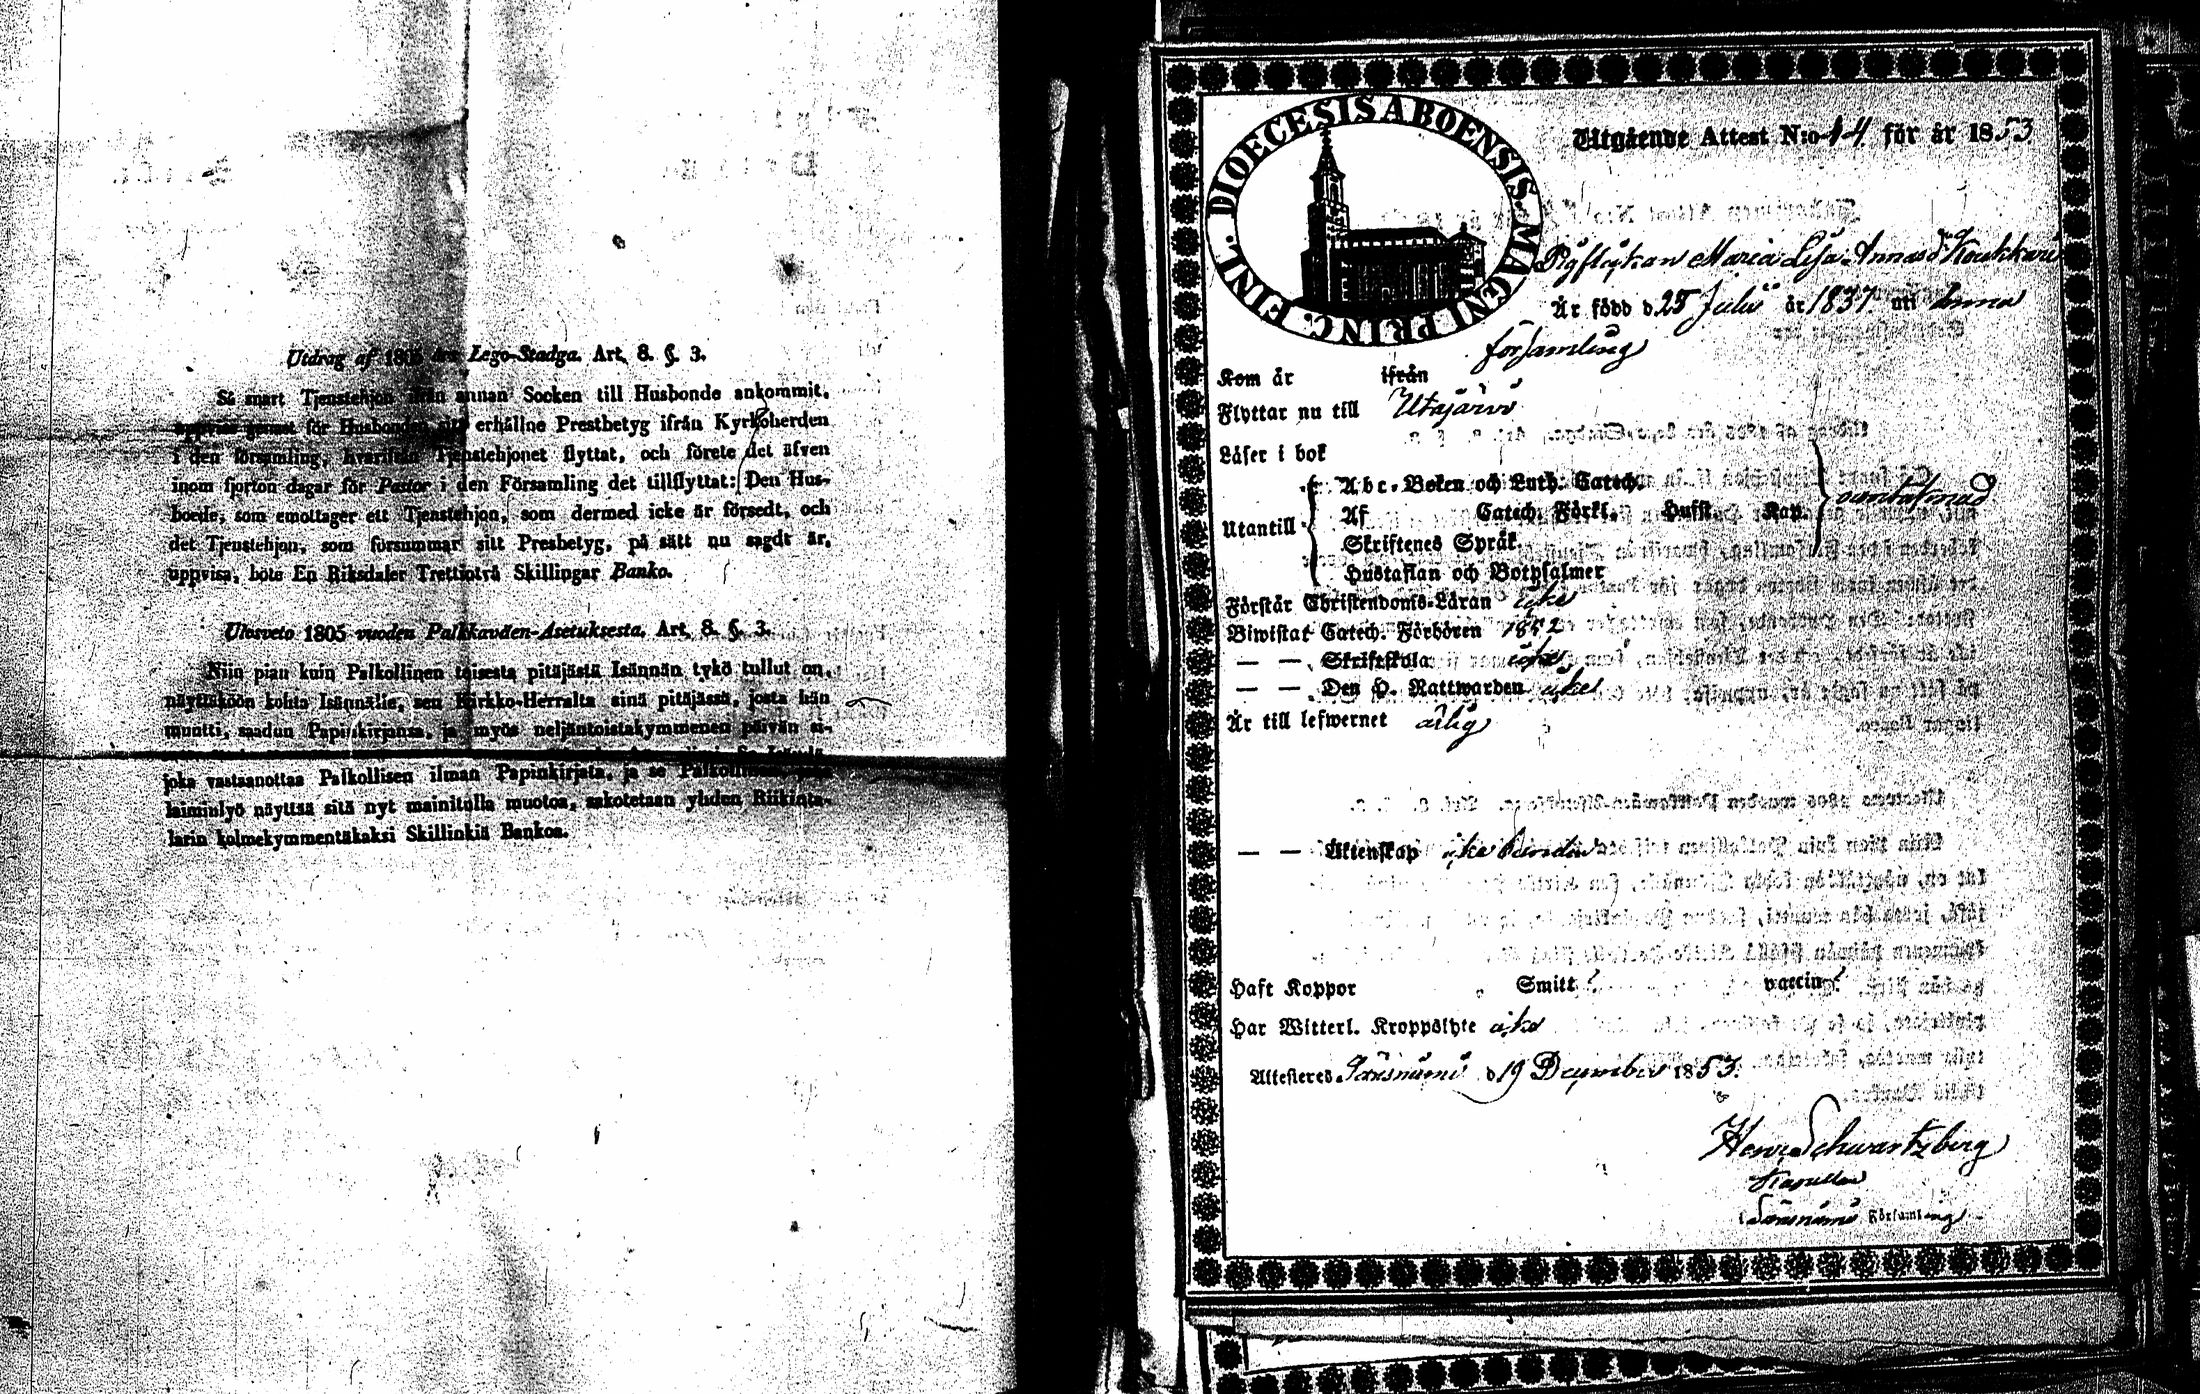 Utdrag af 1805 års Lego-Stadga. Art. 8. §. 3.
Så snart Tjenstehjon ifrån annan Socken till Husbonde ankommit,
uppvise genast för Husbonden sitt erhållne Prestbetyg ifrån Kyrkoherden
i den församling, hvarifrån Tjenstehjonet flyttat, och förete det äfven
inom fjorton dagar för Pastor i den Församling det tillflyttat: Den Hus-
bonde, som emottager ett Tjenstehjon, som dermed icke är försedt, och
det Tjenstehjon, som försummar sitt Presbetyg, på sätt nu sagdt är,
uppvisa, böte En Riksdaler Trettiotvå Skillingar Banko.
Ulosveto 1805 vuoden Palkkaväen-Asetuksesta. Art. 8. §. 3.
Niin pian kuin Palkollinen toisesta pitäjästä Isännän tykö tullut on,
näyttäköön kohta Isännälle, sen Kirkko-Herralta siinä pitäjässä, josta hän
muutti, saadun Papinkirjansa, ja myös neljäntoistakymmenen päivän si-
joka vastaanottaa Palkollisen ilman Papinkirjata, ja se Palkollinen,
laiminlyö näyttää sitä nyt mainitulla muotoa, sakotetaan yhden Riikinta-
larin kolmekymmentäkaksi Skillinkiä Bankoa.
DIOECESIS ABOENSIS. MAGNI PRINC. FINL.
Utgående Attest N:o 14 för år 1853
Pigflickan Maria Lisa Annasdr Koukkari
Är född d 25 Julii år 1837 uti
församling
Kom år ifrån
Flyttar nu till Utajärvi
Läser i bok
Utantill
Abc-Boken och Luth. Catech.
Af Catech. Förkl. Hufst. Kap.
Skriftenes Språk.
Hustaflan och Botpsalmer
Förstår Christendoms-Läran
Biwistat Catech. Förhören 1852
— — Skriftskola
— — Den H. Nattwarden
Är till lefwernet ärlig
— — Äktenskap icke bunden
Haft Koppor Smitt ? vaccin ?
Har Witterl. Kroppslyte icke
Attesteres Säräisniemi d 19 December 1853.
Henr. Schwartzberg
Kapellan
i Säräisniemi Församling